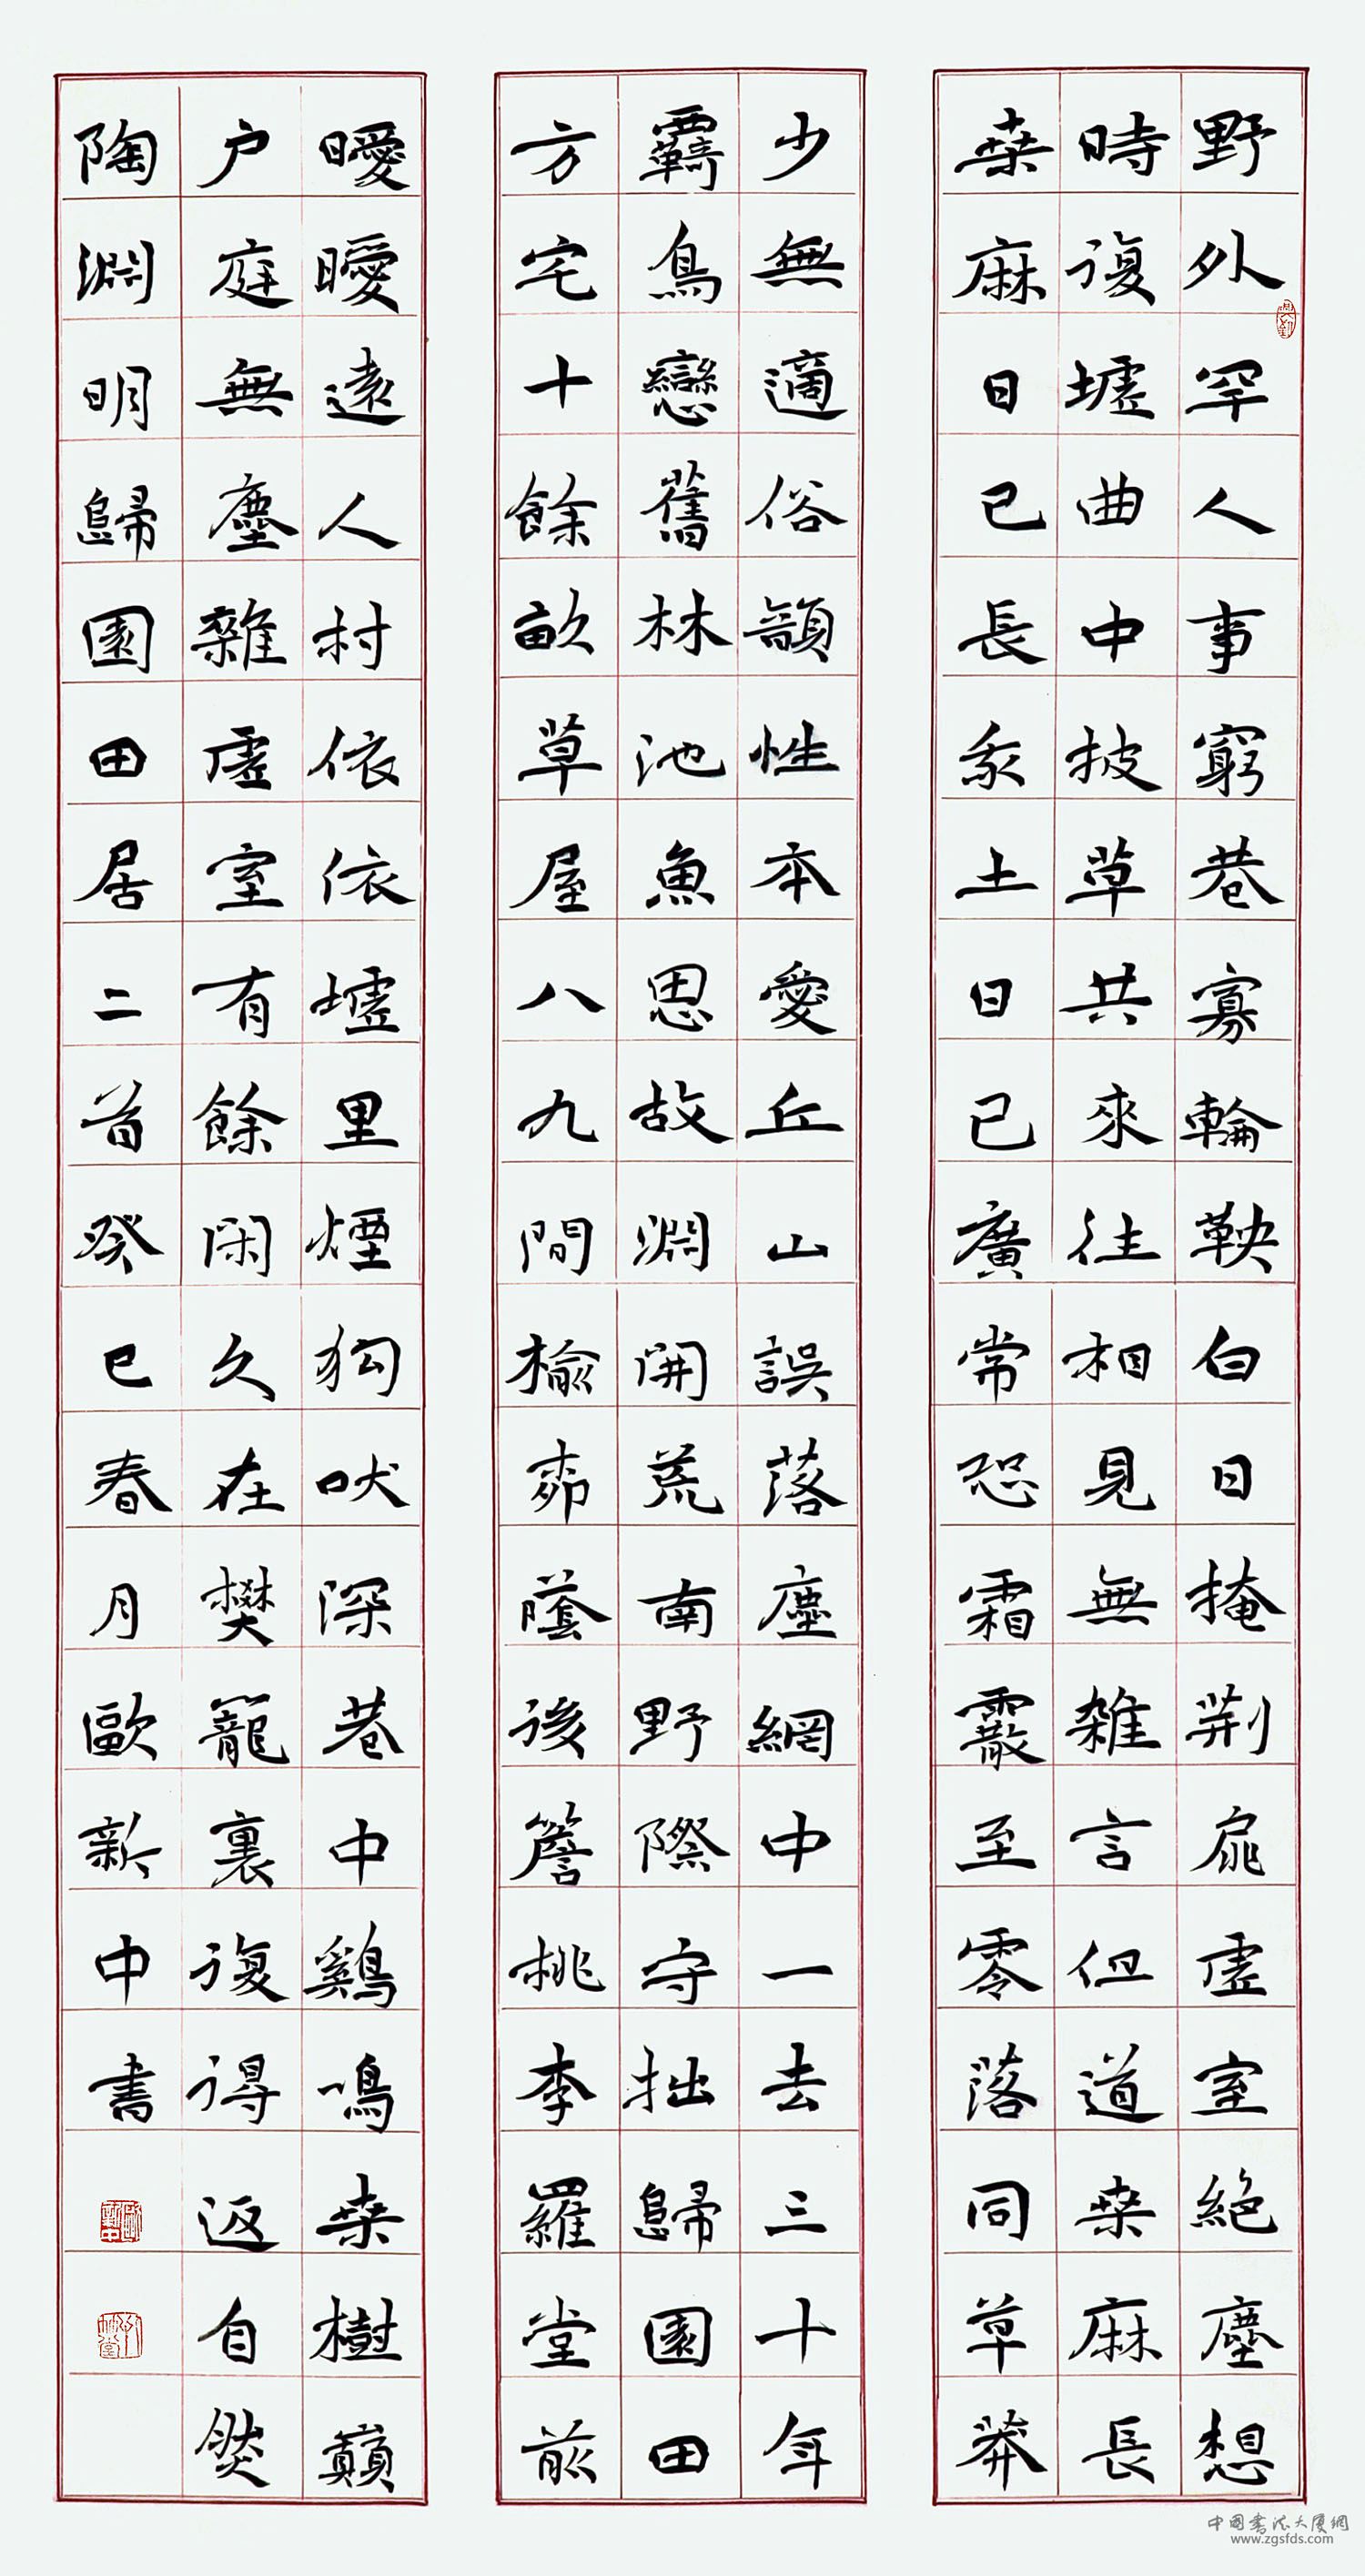 野外罕人事窮巷寡輪鞅白日掩荊扉虛室絕塵想
時復墟曲中披草共來往相見無雜言但道桑麻長
桑麻日已長我土日已廣常恐霜霰至零落同草莽
少無適俗韻性本愛丘山誤落塵網中一去三十年
覊鳥戀舊林池魚思故淵開荒南野際守拙歸園田
方宅十餘畝草屋八九間榆柳蔭後簷桃李羅堂前
曖曖遠人村依依墟里煙狗吠深巷中鷄鳴桑樹巔
户庭無塵雜虛室有餘閑久在樊籠裏復得返自然
陶淵明歸園田居二首癸巳春月歐新中書
中國書法大廈網
www.zgsfds.com